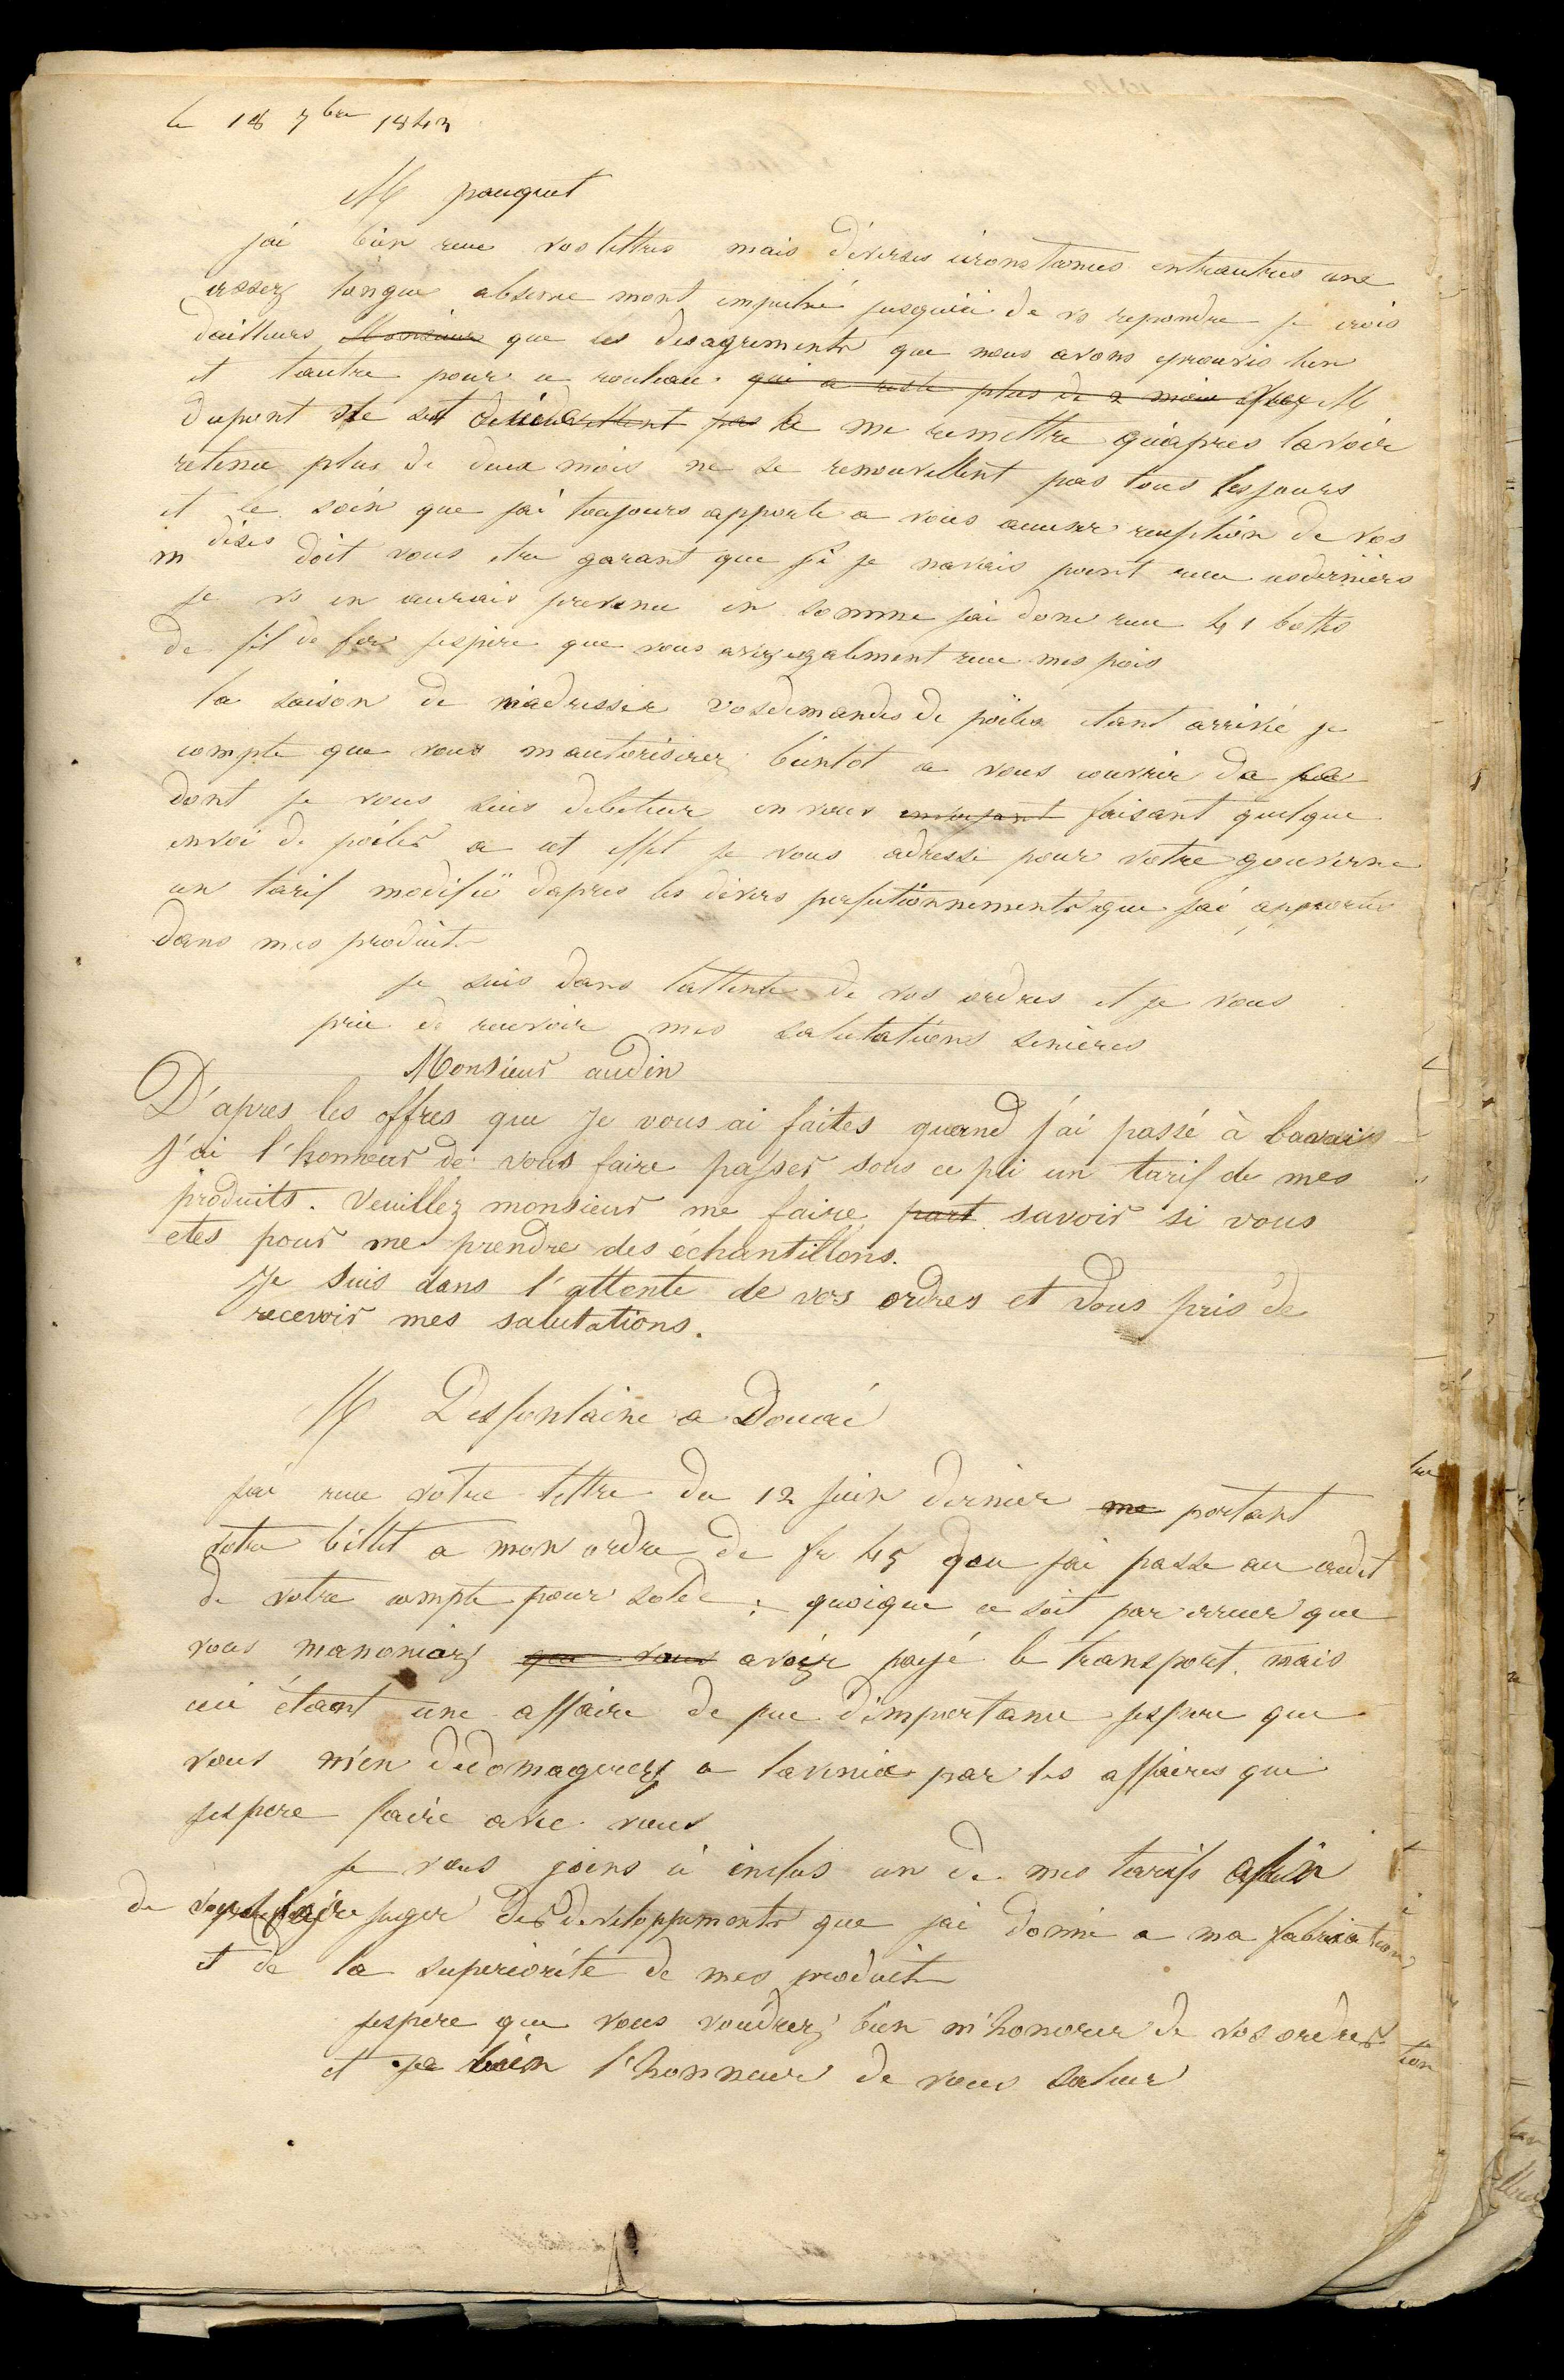 le 18 7bre 1843
M pauquet
jai bien recu vos lettres mais diverses circonstances entrautres une
assez longue absence mont empeché jusquici de vs repondre je crois
dailleurs Monsieur que les desagrements que nous avons eprouvés lun
et lautre pour ce rouleau qui a resté plus de 2 mois chez M
dupont ne se renouvellent pas le me remettre quapres lavoir
retenu plus de deux mois ne se renouvellent pas tous les jours
et le soin que jai toujours apporte a vous accuser reception de vos
mdises doit vous etre garant que si je navais point recu ces derniers
je vs en aurais prevenu en somme jai donc recu 41 bottes
de fil de fer jespere que vous avez egalement recu mes pois
la saison de madresser vos demandes de poëles etant arrivé je
compte que vous mautoriserez bientot a vous couvrir de
dont je vous suis debiteur en vous envoyant faisant quelque
envoi de poëles a cet effet je vous adresse pour votre gouverne
un tarif modifié dapres les divers perfectionnements que jai apportés
dans mes produits
je suis dans lattente de vos ordres et je vous
prie de recevoir mes salutations sinceres
Monsieur audin
D'apres les offres que je vous ai faites quand j'ai passé à bavais
j'ai l'honneur de vous faire passer sous ce pli un tarif de mes
produits. Veuillez monsieur me faire part savoir si vous
etes pour me prendre des échantillons.
Je suis dans l'attente de vos ordres et vous pris de
recevoir mes salutations.
M Desfontaine a Douai
jai recu votre lettre du 12 juin dernier me portant
votre billet a mon ordre de fr 45 que jai passe au credit
de votre compte pour solde ; quoique ce soit par erreur que
vous manonciez que vous avoir payé le transport. mais
ceci étant une affaire de peu dimportance jespere que
vous m'en dedomagerez a lavenir par les affaires que
jespere faire avec vous
je vous joins ci inclus un de mes tarifs afin
de vous faire juger des developpements que jai donné a ma fabrication
et de la superiorité de mes produits
jespere que vous voudrez bien m'honorer de vos ordres
et jai bien l'honneur de vous saluer